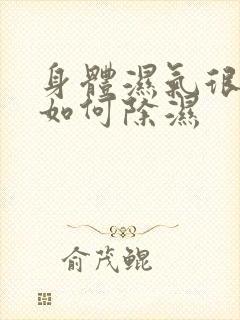 身體濕氣很
如何除濕
俞茂鲲